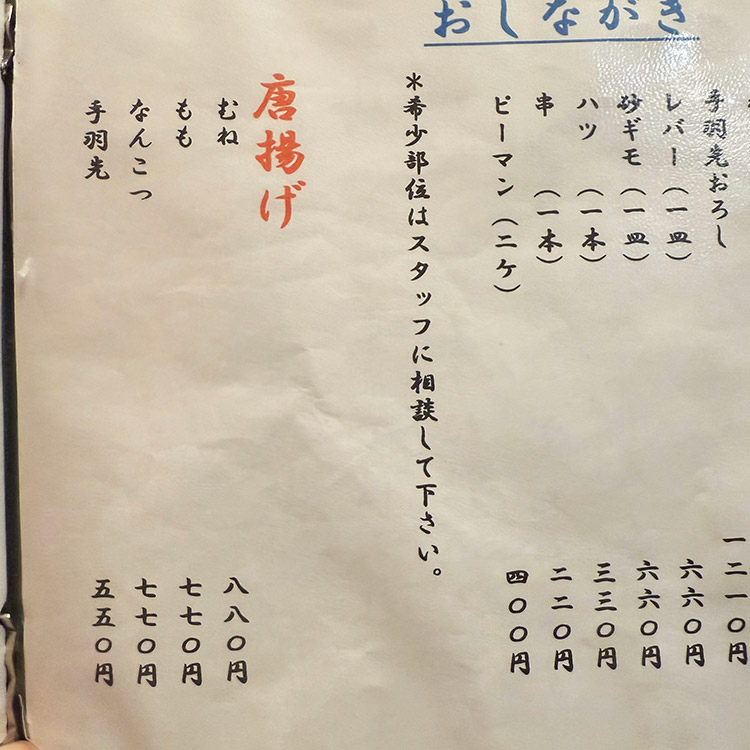 おしながき
手羽先おろし 一二一〇円
レバー（一皿） 六六〇円
砂ギモ（一皿） 六六〇円
ハツ（一本） 三三〇円
串（一本） 二二〇円
ピーマン（二ケ） 四〇〇円
＊希少部位はスタッフに相談して下さい。
唐揚げ
むね 八八〇円
もも 七七〇円
なんこつ 七七〇円
手羽先 五五〇円